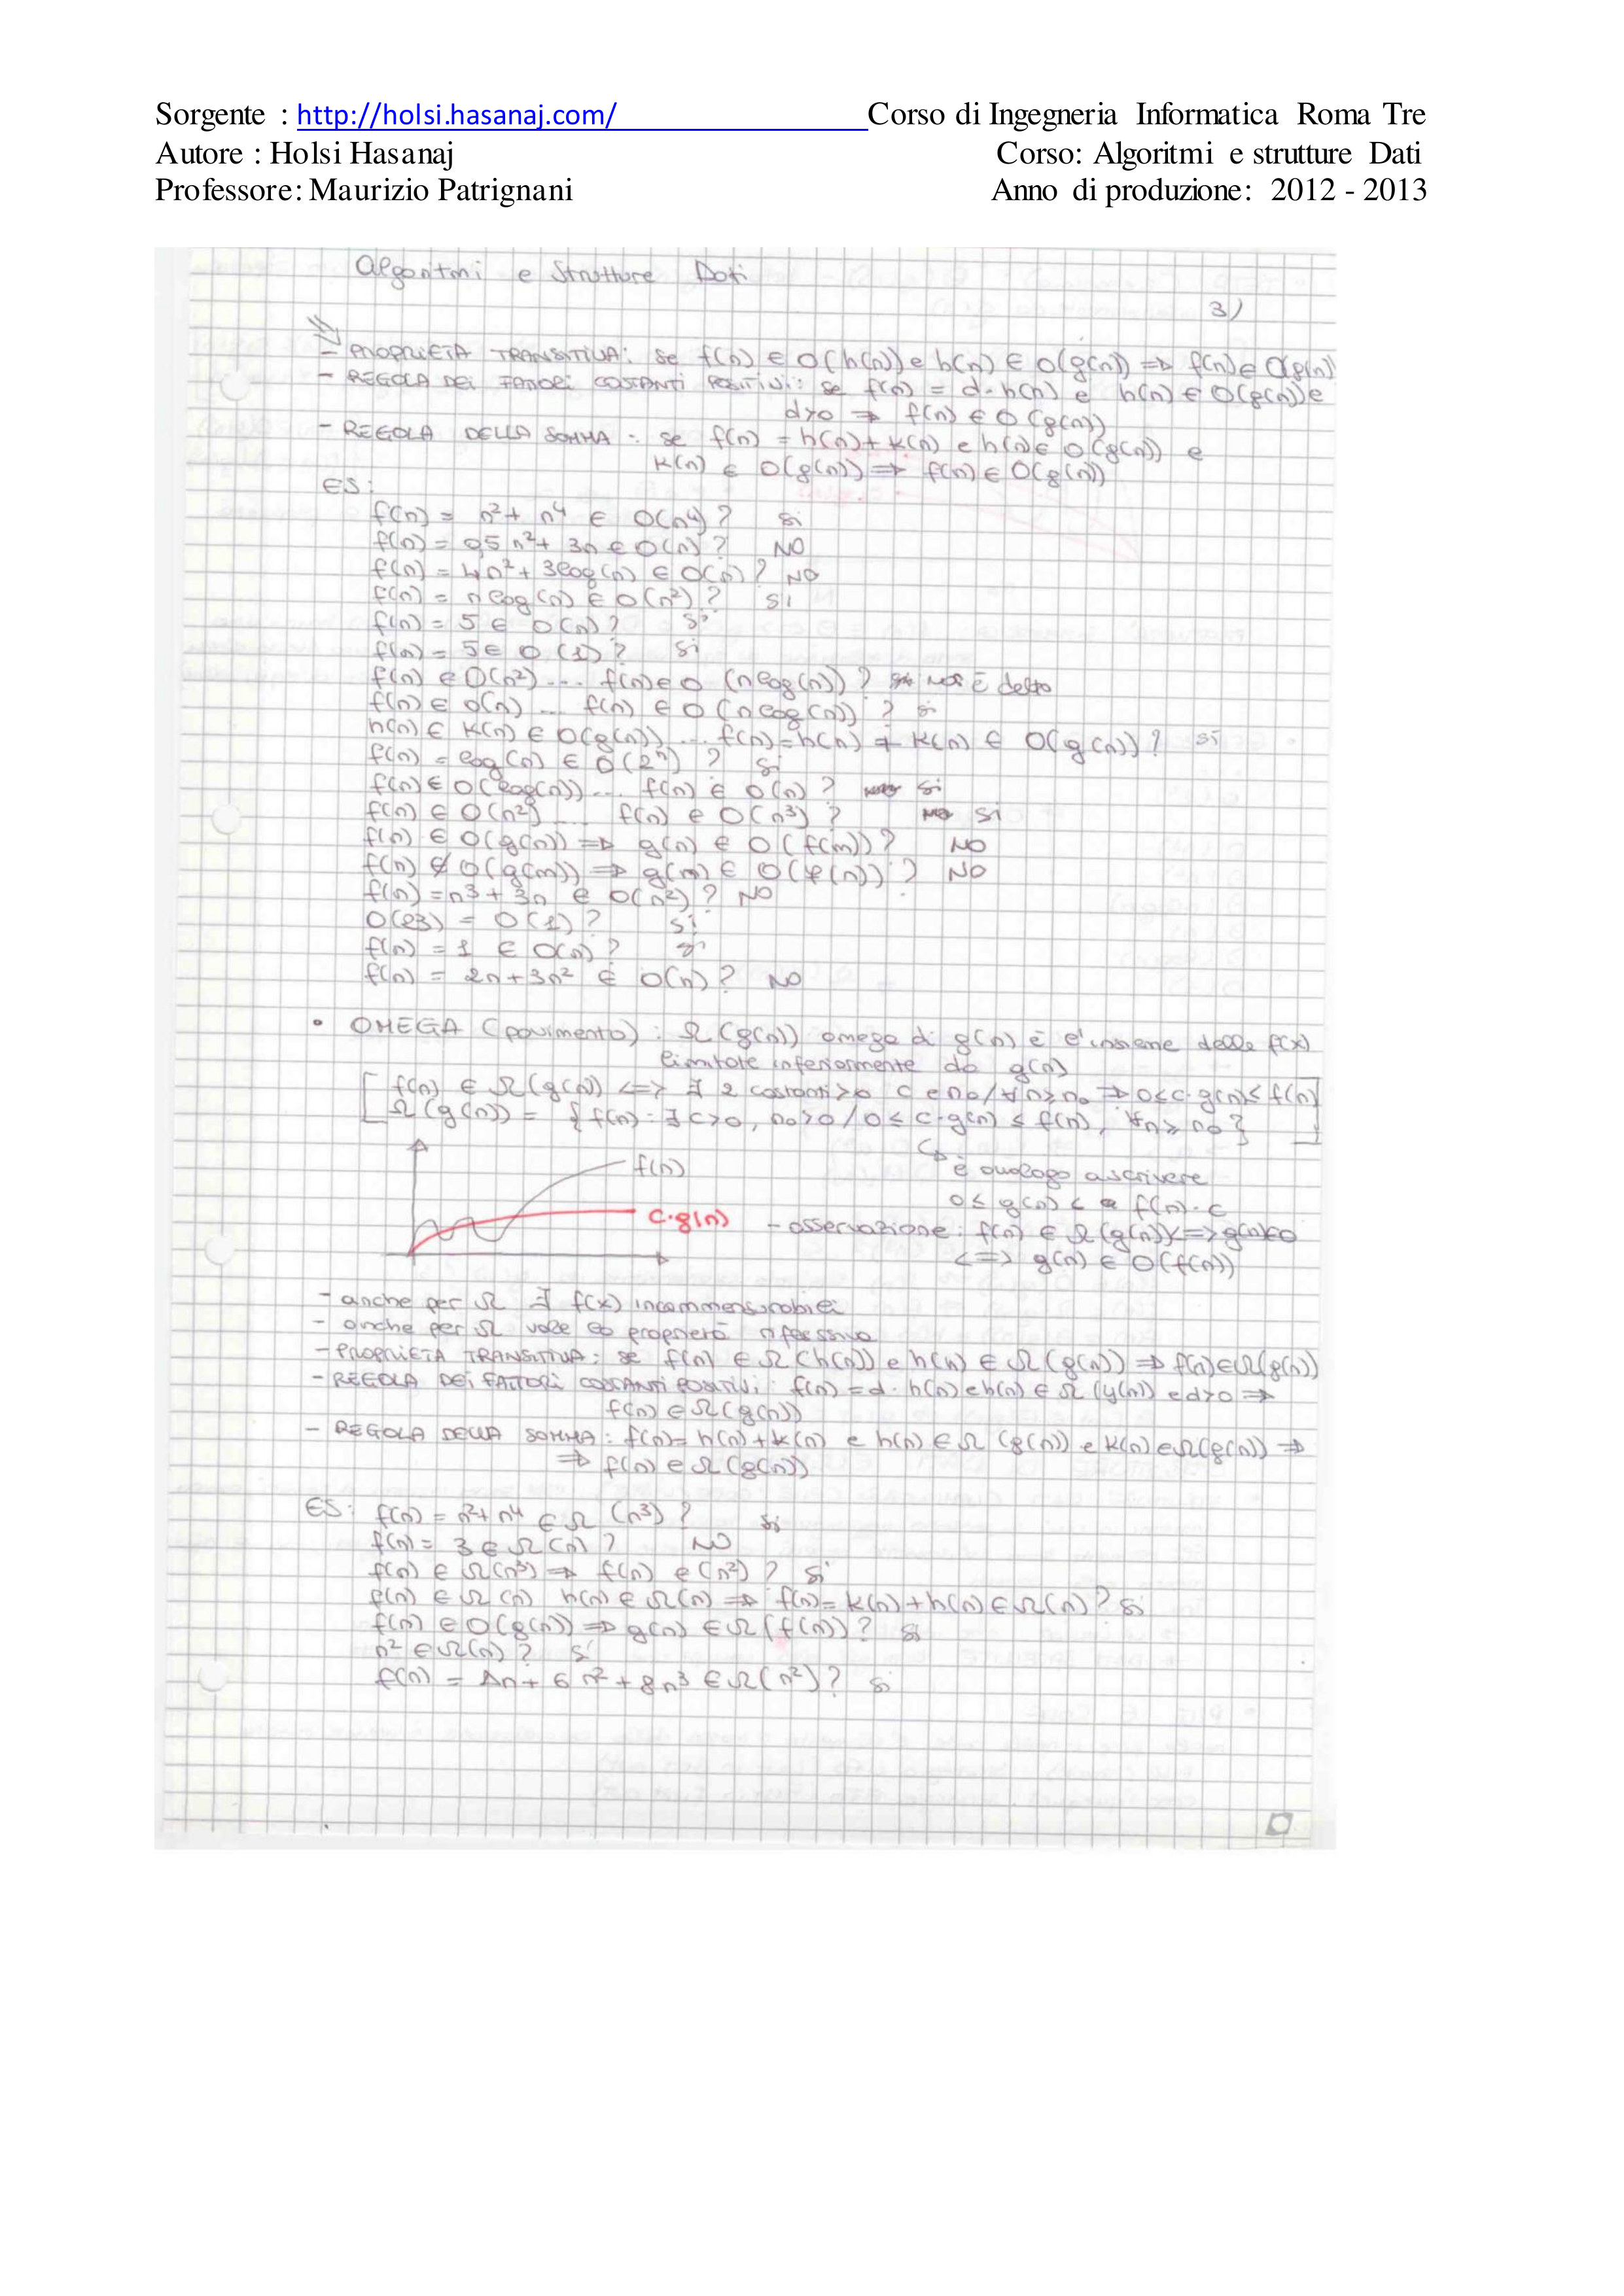 Sorgente : http://holsi.hasanaj.com/ Corso di Ingegneria Informatica Roma Tre
Autore : Holsi Hasanaj Corso: Algoritmi e strutture Dati
Professore: Maurizio Patrignani Anno di produzione: 2012 - 2013
Algoritmi e Strutture Dati
3)
- PROPRIETÀ TRANSITIVA: se f(n) ∈ O(h(n)) e h(n) ∈ O(g(n)) ⇒ f(n) ∈ O(g(n))
- REGOLA DEI FATTORI COSTANTI POSITIVI: se f(n) = d·h(n) e h(n) ∈ O(g(n)) e
d>0 ⇒ f(n) ∈ O(g(n))
- REGOLA DELLA SOMMA: se f(n) = h(n)+k(n) e h(n) ∈ O(g(n)) e
k(n) ∈ O(g(n)) ⇒ f(n) ∈ O(g(n))
ES:
f(n) = n²+ n⁴ ∈ O(n⁴)? si
f(n) = 95n²+ 3n ∈ O(n)? NO
f(n) = 4n²+ 3log(n) ∈ O(n)? NO
f(n) = nlog(n) ∈ O(n²)? SI
f(n) = 5 ∈ O(n)? si
f(n) = 5 ∈ O(1)? si
f(n) ∈ O(n²) ... f(n) ∈ O(nlog(n))? NON È detto
f(n) ∈ O(n) ... f(n) ∈ O(nlog(n))? si
h(n) ∈ k(n) ∈ O(g(n)) ... f(n)=h(n)+k(n) ∈ O(g(n))? si
f(n) = log(n) ∈ O(2ⁿ)? si
f(n) ∈ O(log(n)) ... f(n) ∈ O(n)? si
f(n) ∈ O(n²) ... f(n) ∈ O(n³)? SI
f(n) ∈ O(g(n)) ⇒ g(n) ∈ O(f(n))? NO
f(n) ∉ O(g(n)) ⇒ g(n) ∈ O(f(n))? NO
f(n) = n³+ 3n ∈ O(n²)? NO
O(23) = O(1)? si
f(n) = 1 ∈ O(n)? si
f(n) = 2n+3n² ∈ O(n)? NO
• OMEGA (pavimento): Ω(g(n)) omega di g(n) è l'insieme delle f(x)
limitate inferiormente da g(n)
f(n) ∈ Ω(g(n)) <=> ∃ 2 costanti>0 c e n₀/∀n≥n₀ ⇒ 0≤c·g(n)≤f(n)
Ω(g(n)) = {f(n): ∃ c>0, n₀>0 / 0 ≤ c·g(n) ≤ f(n), ∀n ≥ n₀}
f(n)
è analogo a scrivere
0≤ g(n) < f(n)·c
c·g(n)
- osservazione: f(n) ∈ Ω(g(n)) <=> g(n)∈O
<=> g(n) ∈ O(f(n))
- anche per Ω ∃ f(x) incommensurabili
- anche per Ω vale la proprietà riflessiva
- PROPRIETÀ TRANSITIVA: se f(n) ∈ Ω(h(n)) e h(n) ∈ Ω(g(n)) ⇒ f(n) ∈ Ω(g(n))
- REGOLA DEI FATTORI COSTANTI POSITIVI: f(n) = d·h(n) e h(n) ∈ Ω(g(n)) e d>0 ⇒
f(n) ∈ Ω(g(n))
- REGOLA DELLA SOMMA: f(n)= h(n)+k(n) e h(n) ∈ Ω(g(n)) e k(n) ∈ Ω(g(n)) ⇒
⇒ f(n) ∈ Ω(g(n))
ES: f(n) = n²+n⁴ ∈ Ω(n³)? si
f(n) = 3 ∈ Ω(n)? NO
f(n) ∈ Ω(n³) ⇒ f(n) ∈ (n²)? si
f(n) ∈ Ω(n) h(n) ∈ Ω(n) ⇒ f(n)= k(n)+h(n) ∈ Ω(n)? si
f(n) ∈ O(g(n)) ⇒ g(n) ∈ Ω(f(n))? si
n² ∈ Ω(n)? si
f(n) = 1n+ 6n²+8n³ ∈ Ω(n²)? si